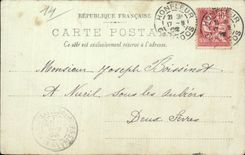 A9
RÉPUBLIQUE FRANÇAISE
CARTE POSTALE
Ce côté est exclusivement réservé à l'adresse.
HONFLEUR
CALVADOS
Monsieur Joseph Boissinot
A Nueil sous les Aubiers
Deux Sèvres